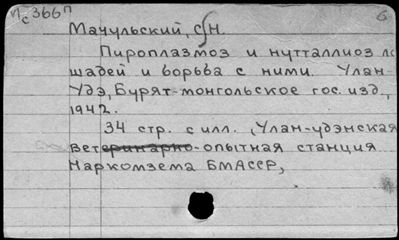 Ис366п б
Мачульский, С.Н.
Пироплазмоз и нутталлиоз ло
шадей и борьба с ними. Улан-
Удэ, Бурят-монгольское гос. изд.,
1942.
34 стр. с илл. (Улан-удэнская
ветеринарно-опытная станция
Наркомзема БМАССР,